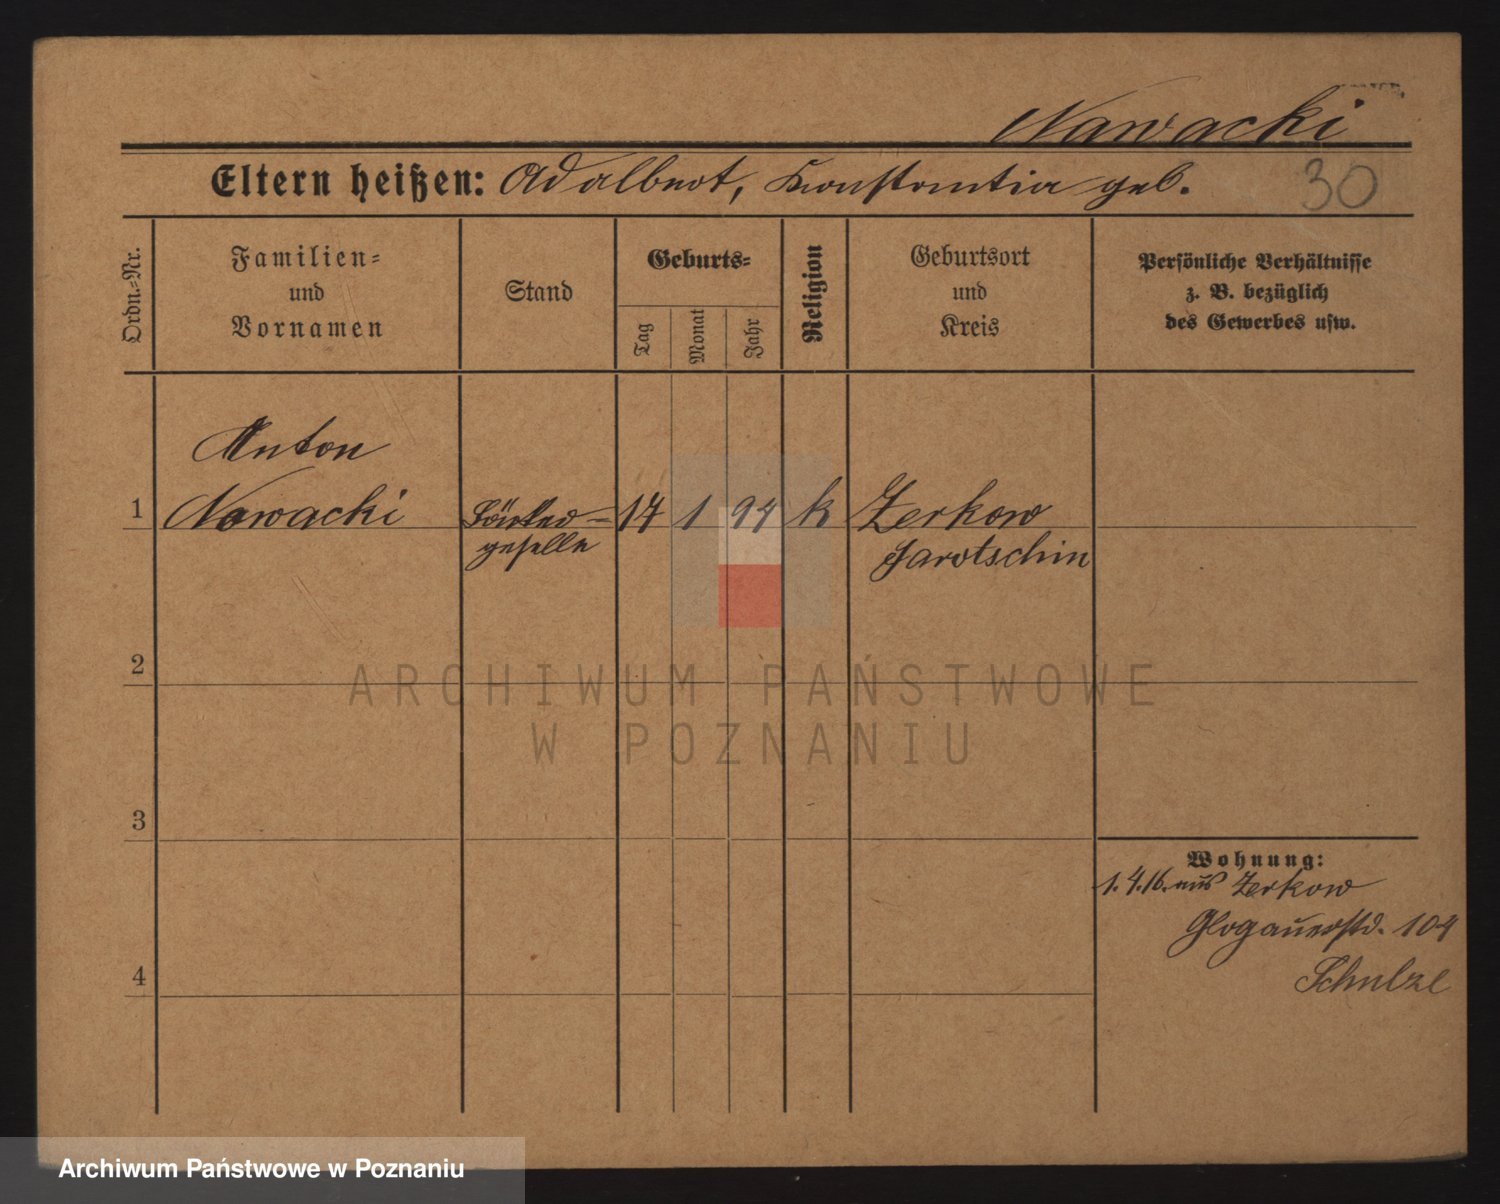 Nawacki
Eltern heißen: Adalbert, Konstantia geb.
30
Ordn.-Nr.
Familien-
und
Vornamen
Stand
Geburts-
Tag
Monat
Jahr
Religion
Geburtsort
und
Kreis
Persönliche Verhältnisse
z. B. bezüglich
des Gewerbes usw.
Anton
1 Nowacki 17 1 94 k Zerkow
geselle Jarotschin
2
ARCHIWUM PAŃSTWOWE
W POZNANIU
3
Wohnung:
1.4.16. aus Zerkow
Glogauerstr. 104
Schulze
4
Archiwum Państwowe w Poznaniu